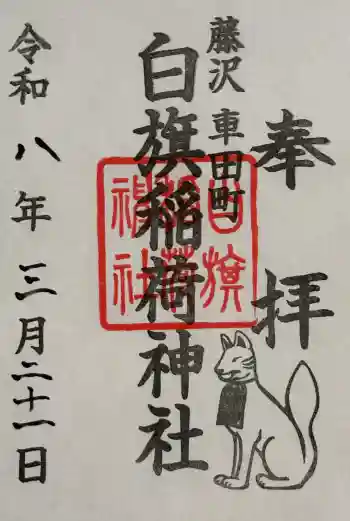 奉拝
藤沢 車田町
白旗稲荷神社
白旗
稲荷
神社
令和八年三月二十一日